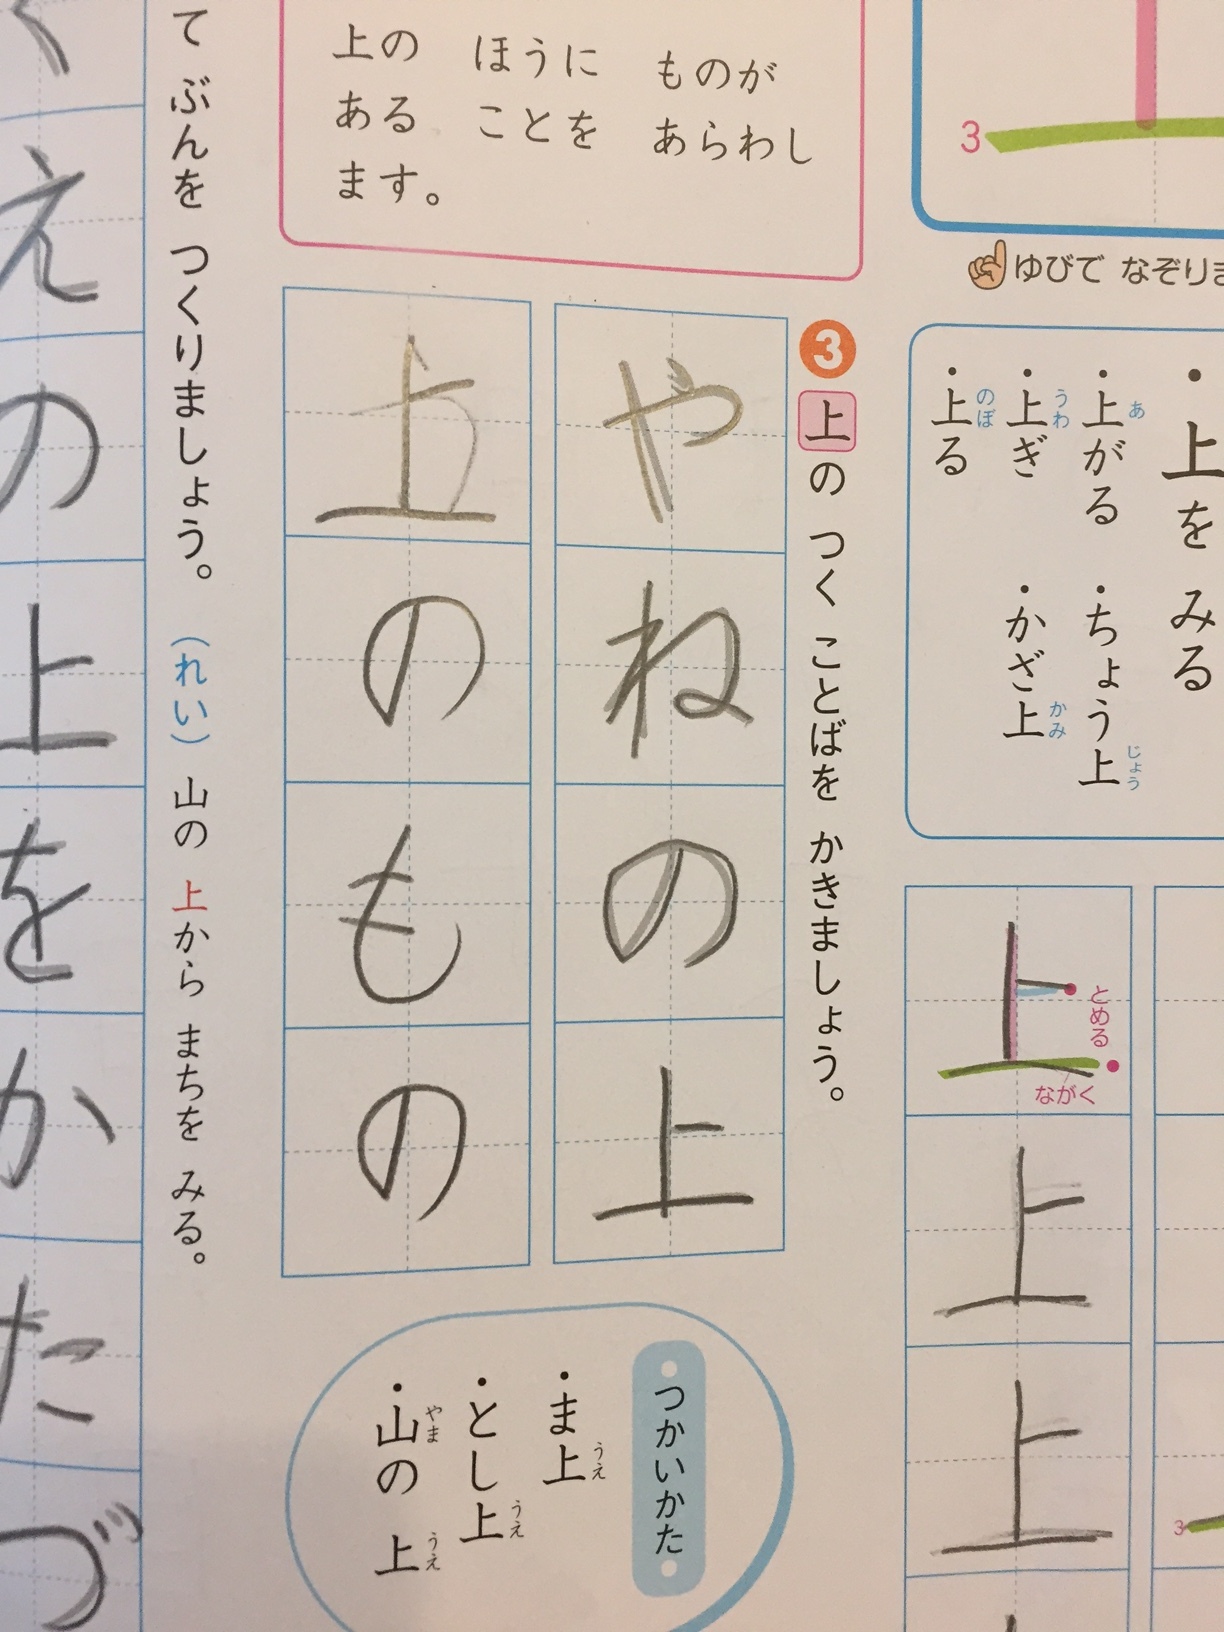 3
ゆびで なぞりま
・上を みる
・上がる ・ちょう上
あ じょう
・上ぎ ・かざ上
うわ かみ
・上る
のぼ
上
とめる
ながく
上
上
3
上の ほうに ものが
ある ことを あらわし
ます。
3 上の つく ことばを かきましょう。
やねの上
上のもの
つかいかた
・ま上
うえ
・とし上
うえ
・山の 上
やま うえ
て ぶんを つくりましょう。 (れい) 山の 上から まちを みる。
えの上をかたづ